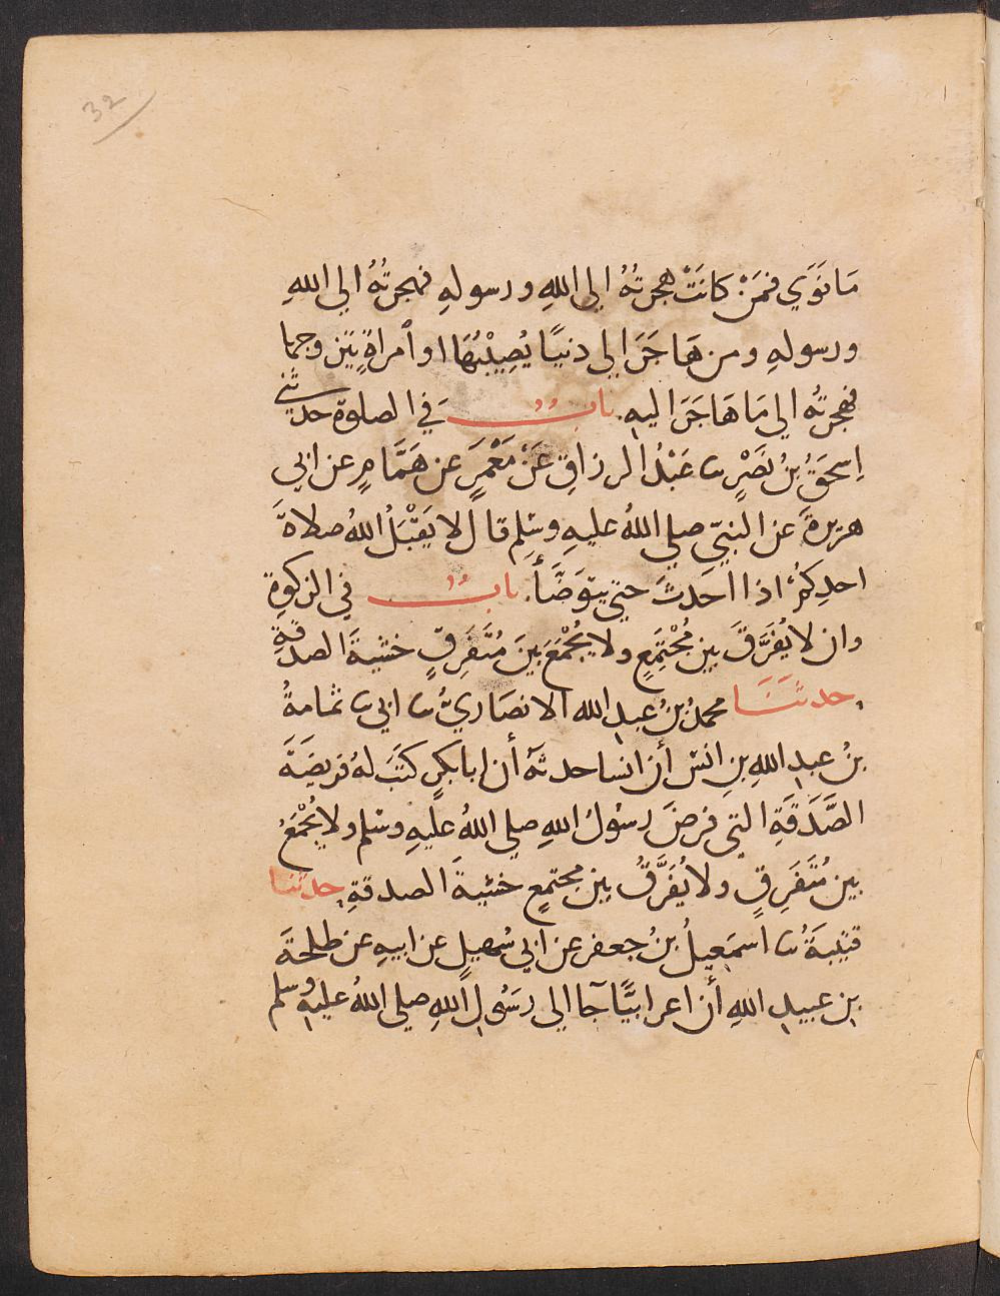 32
مَا نَوَي فمَنْ كانَتْ هجرتُهُ الي اللهِ ورسولهِ فهجرتُهُ الي اللهِ
ورسولهِ ومن هَاجَرَ الي دنيًا يُصِيْبُهَا او اُمراةٍ يتزوجها
فهجرتُه الي مَا هَاجَرَ اليهِ. بابٌ في الصلوة حدثني
اِسحَقُ بنُ نَصْرٍ نا عَبْدُ الرزاقِ عَنْ مَعْمَرٍ عن هَمَّامٍ عن ابي
هريرةَ عن النبيّ صلي اللهُ عليهِ وسلم قال لا يَقْبَلُ اللهُ صلاةَ
احدِكمُ اذا احَدثَ حتي يتوَضَأَ. بابٌ في الزكوةِ
وان لا يُفَرَّقَ بين مُجْتَمِعٍ ولا يُجْمَعَ بينَ مُتَفرِقٍ خشيةَ الصدقةِ
. حدثَنَا محمدُ بنُ عبدِ الله الانصَاريُّ نا ابي نا ثمامةُ
بنُ عبدِ اللهِ بنِ انسٍ أن انسا حدثَهُ أن ابا بكرٍ كتبَ لهُ فريضَةَ
الصَّدَقَةِ التي فرضَ رسُولُ اللهِ صلي اللهُ عليهِ وسلم ولا يُجْمَعُ
بين مُتَفرِقٍ ولا يُفَرَّقُ بين مجتمعٍ خشيةَ الصدقةِ. حدثنا
قتيبةُ نا اسمعيلُ بنُ جعفر عن ابي سُهيلٍ عن ابيهِ عن طلحةَ
بن عبيدِ اللهِ أن اعرابيًّا جآ الي رسُولِ اللهِ صلي اللهُ عليهِ وسلم